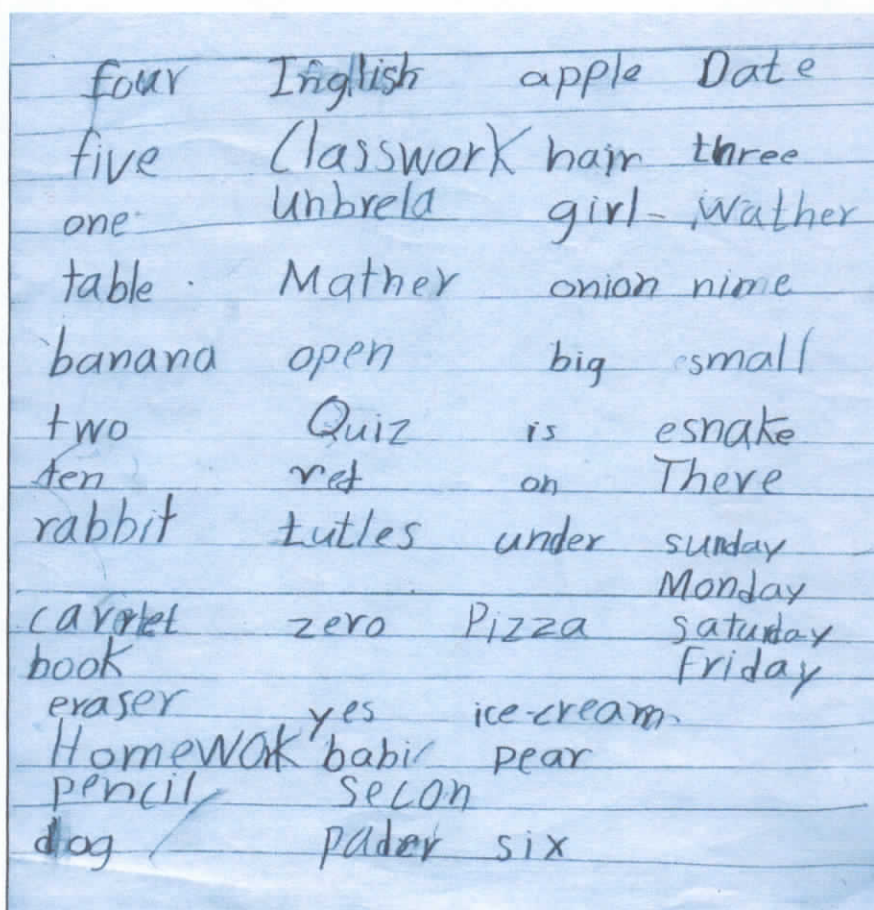 four Inglish apple Date
five Classwork hair three
one unbrela girl wather
table Mather onion nime
banana open big small
two Quiz is esnake
ten ret on There
rabbit tutles under sunday
Monday
carrotet zero Pizza saturday
book Friday
eraser yes ice-cream.
Homework babi pear
pencil secon
dog pader six